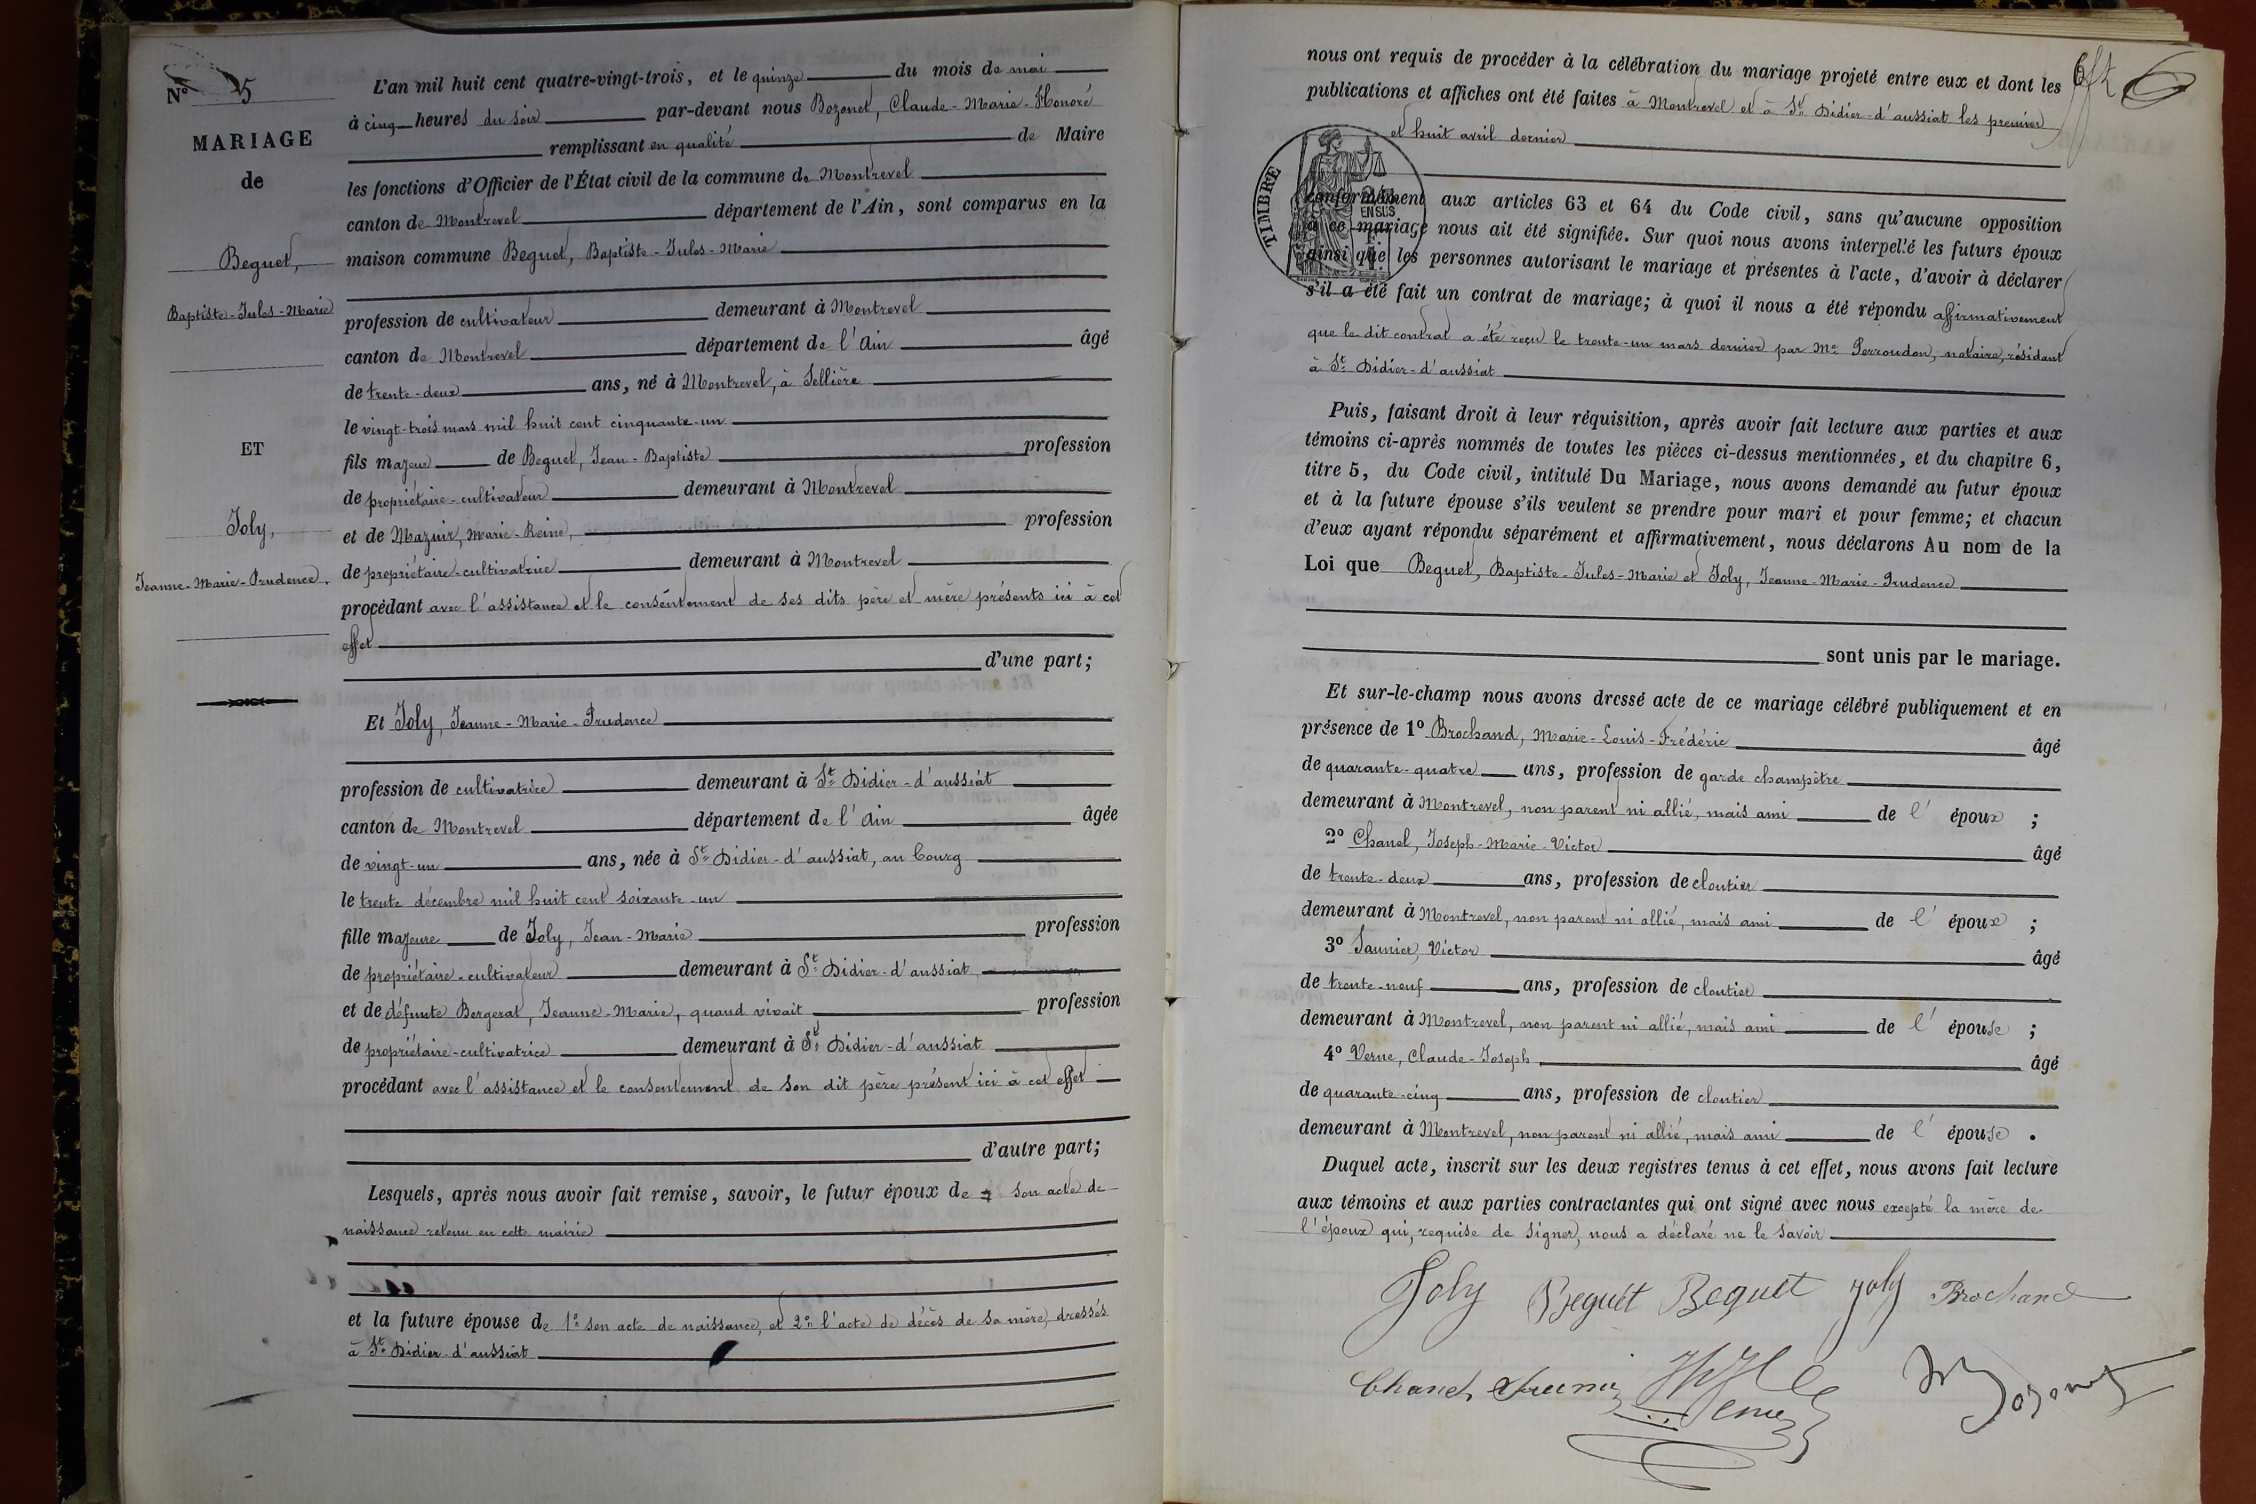 Nº 5
MARIAGE
de
Beguet,
Baptiste-Jules-Marie
ET
Joly,
Jeanne-Marie-Prudence.
L'an mil huit cent quatre-vingt-trois, et le quinze du mois de mai
à cinq heures du soir par-devant nous Bozonet, Claude-Marie-Honoré
remplissant en qualité de Maire
les fonctions d'Officier de l'État civil de la commune de Montrevel
canton de Montrevel département de l'Ain, sont comparus en la
maison commune Beguet, Baptiste-Jules-Marie
profession de cultivateur demeurant à Montrevel
canton de Montrevel département de l'Ain âgé
de trente-deux ans, né à Montrevel, à Sellière
le vingt-trois mars mil huit cent cinquante-un
fils majeur de Beguet, Jean-Baptiste profession
de propriétaire-cultivateur demeurant à Montrevel
et de Mazuir, Marie-Reine, profession
de propriétaire-cultivatrice demeurant à Montrevel
procédant avec l'assistance et le consentement de ses dits père et mère présents ici à cet
effet
d'une part;
Et Joly, Jeanne-Marie-Prudence
profession de cultivatrice demeurant à St Didier-d'aussiat
canton de Montrevel département de l'Ain âgée
de vingt-un ans, née à St Didier-d'aussiat, au bourg
le trente décembre mil huit cent soixante-un
fille majeure de Joly, Jean-Marie profession
de propriétaire-cultivateur demeurant à St Didier-d'aussiat,
et de défunte Bergerat, Jeanne-Marie, quand vivait profession
de propriétaire-cultivatrice demeurant à St Didier-d'aussiat
procédant avec l'assistance et le consentement de son dit père présent ici à cet effet
d'autre part;
Lesquels, après nous avoir fait remise, savoir, le futur époux de son acte de
naissance retenu en cette mairie
et la future épouse de 1º son acte de naissance, et 2º l'acte de décès de sa mère, dressés
à St Didier-d'aussiat
6
nous ont requis de procéder à la célébration du mariage projeté entre eux et dont les
publications et affiches ont été faites à Montrevel et à St Didier-d'aussiat les premier
et huit avril dernier
TIMBRE
EN SUS
conformément aux articles 63 et 64 du Code civil, sans qu'aucune opposition
à ce mariage nous ait été signifiée. Sur quoi nous avons interpelé les futurs époux
ainsi que les personnes autorisant le mariage et présentes à l'acte, d'avoir à déclarer
s'il a été fait un contrat de mariage; à quoi il nous a été répondu affirmativement
que le dit contrat a été reçu le trente-un mars dernier par Me Perroudon, notaire, résidant
à St Didier-d'aussiat
Puis, faisant droit à leur réquisition, après avoir fait lecture aux parties et aux
témoins ci-après nommés de toutes les pièces ci-dessus mentionnées, et du chapitre 6,
titre 5, du Code civil, intitulé Du Mariage, nous avons demandé au futur époux
et à la future épouse s'ils veulent se prendre pour mari et pour femme; et chacun
d'eux ayant répondu séparément et affirmativement, nous déclarons Au nom de la
Loi que Beguet, Baptiste-Jules-Marie et Joly, Jeanne-Marie-Prudence
sont unis par le mariage.
Et sur-le-champ nous avons dressé acte de ce mariage célébré publiquement et en
présence de 1º Brochand, Marie-Louis-Frédéric âgé
de quarante-quatre ans, profession de garde champêtre
demeurant à Montrevel, non parent ni allié, mais ami de l'époux ;
2º Chanel, Joseph-Marie-Victor âgé
de trente-deux ans, profession de cloutier
demeurant à Montrevel, non parent ni allié, mais ami de l'époux ;
3º Saunier, Victor âgé
de trente-neuf ans, profession de cloutier
demeurant à Montrevel, non parent ni allié, mais ami de l'épouse ;
4º Verne, Claude-Joseph âgé
de quarante-cinq ans, profession de cloutier
demeurant à Montrevel, non parent ni allié, mais ami de l'épouse .
Duquel acte, inscrit sur les deux registres tenus à cet effet, nous avons fait lecture
aux témoins et aux parties contractantes qui ont signé avec nous excepté la mère de
l'époux qui, requise de signer, nous a déclaré ne le savoir
Joly Beguet Beguet Joly Brochand
Chanel Verne Bozonet